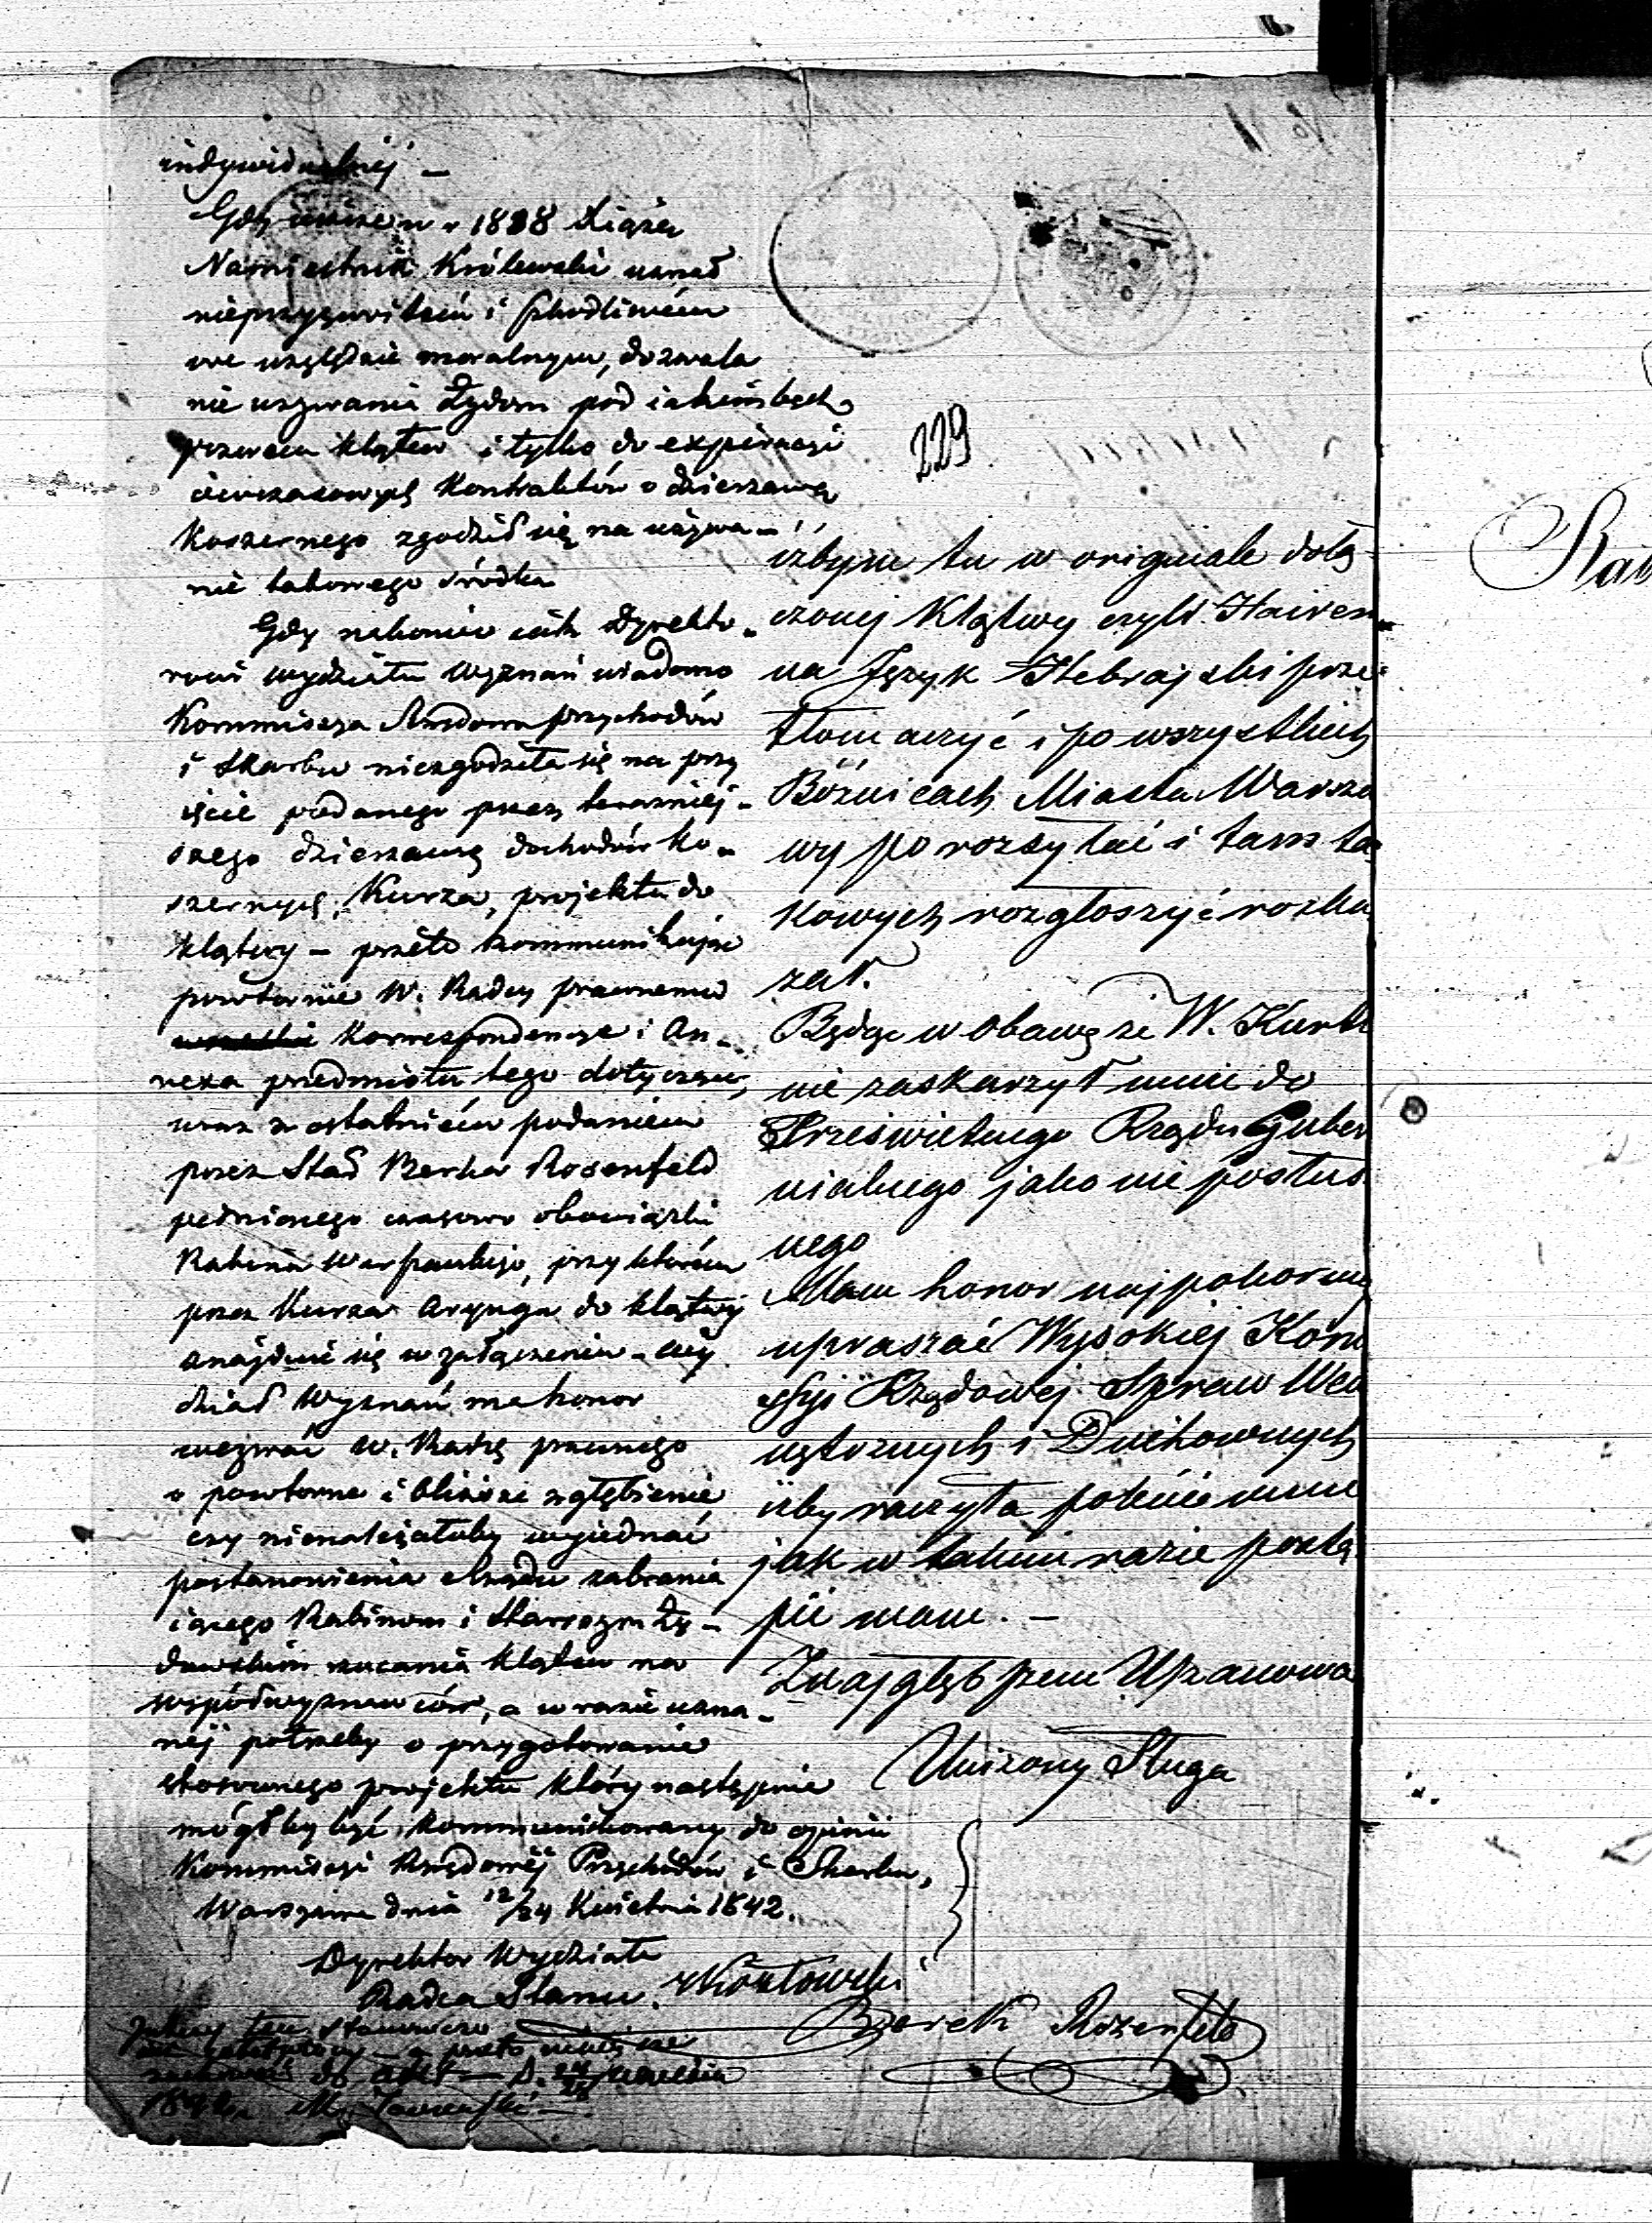 indywidualnéj –
Gdy w r 1838 Xiąże
Namiestnik Królewski uznał
nieprzyzwoitém i szkodliwém
we względzie moralnym, dozwala
nie używania Żydom pod iakimbądź
pozorem klątew i tylko do expiracyi
ówczasowych Kontraktów o dzierżawę
Koszernego zgodził się na używa–
nie takowego środka
Gdy nakoniec iak Dyrekto–
rowi wydziału Wyznań wiadomo
Kommissya Rządowa przychodów
i Skarbu niezgodziła się na przy
ięcie podanego przez teraźniej–
szego dzierżawcę dochodów Ko–
szernych, Kurza, projektu do
klątwy – przeto kommunikując
powtórnie W. Radcy prawnemu
Korrespondencye i An–
nexa przedmiotu tego dotyczące,
wraz z ostatniém podaniem
przez Berka Rosenfeld
pełniącego czasowo obowiązki
Rabina Warszawskiego, przy którém
przez Kurza Arynga do klątwy
znajduie się w załączeniu – Wy
dział Wyznań ma honor
wezwać W. Radcę prawnego
o powtórne i bliższe zgłębienie
czy nienależałoby wyjednać
postanowienia Rządu zabrania
iącego Rabinom i Starszym Ży–
dowskim rzucania klątew na
współwyznawców, a w razie uzna–
néj potrzeby o przygotowanie
stosownego projektu który następnie
mógłby być kommunikowany do opinii
Kommissyi Rządowéj Przychodów i Skarbu,
Warszawa dnia 12/24 Kwietnia 1842.
Dyrektor Wydziału
Radca Stanu. Kozłowski
stanowczo
a przeto
do akt – D.
1842 r.
229
iżbym tu w originale dołą–
czonej Klątwy czyli Hairem
na Język Hebrajski prze–
tłomaczyć i po wszystkich
Bóżnicach Miasta Warsza
wy porozsyłać i tam ta–
kowych rozgłoszyć rozka
zał.
Będąc w obawę że W. Kurtz
nie zaskarzył mnie do
Prześwietnego Rządu Guber
nialnego jako nie posłus
nego
Mam honor najpokorniej
upraszać Wysokiej Kom
issyi Rządowej Spraw Wew
nętrznych i Duchownych
iżby raczyła polecić mnie
jak w takim razie postą
pić mam. –
Z najgłębszem Uszanowa
Uniżony Sługa
Berek Rozenfeld